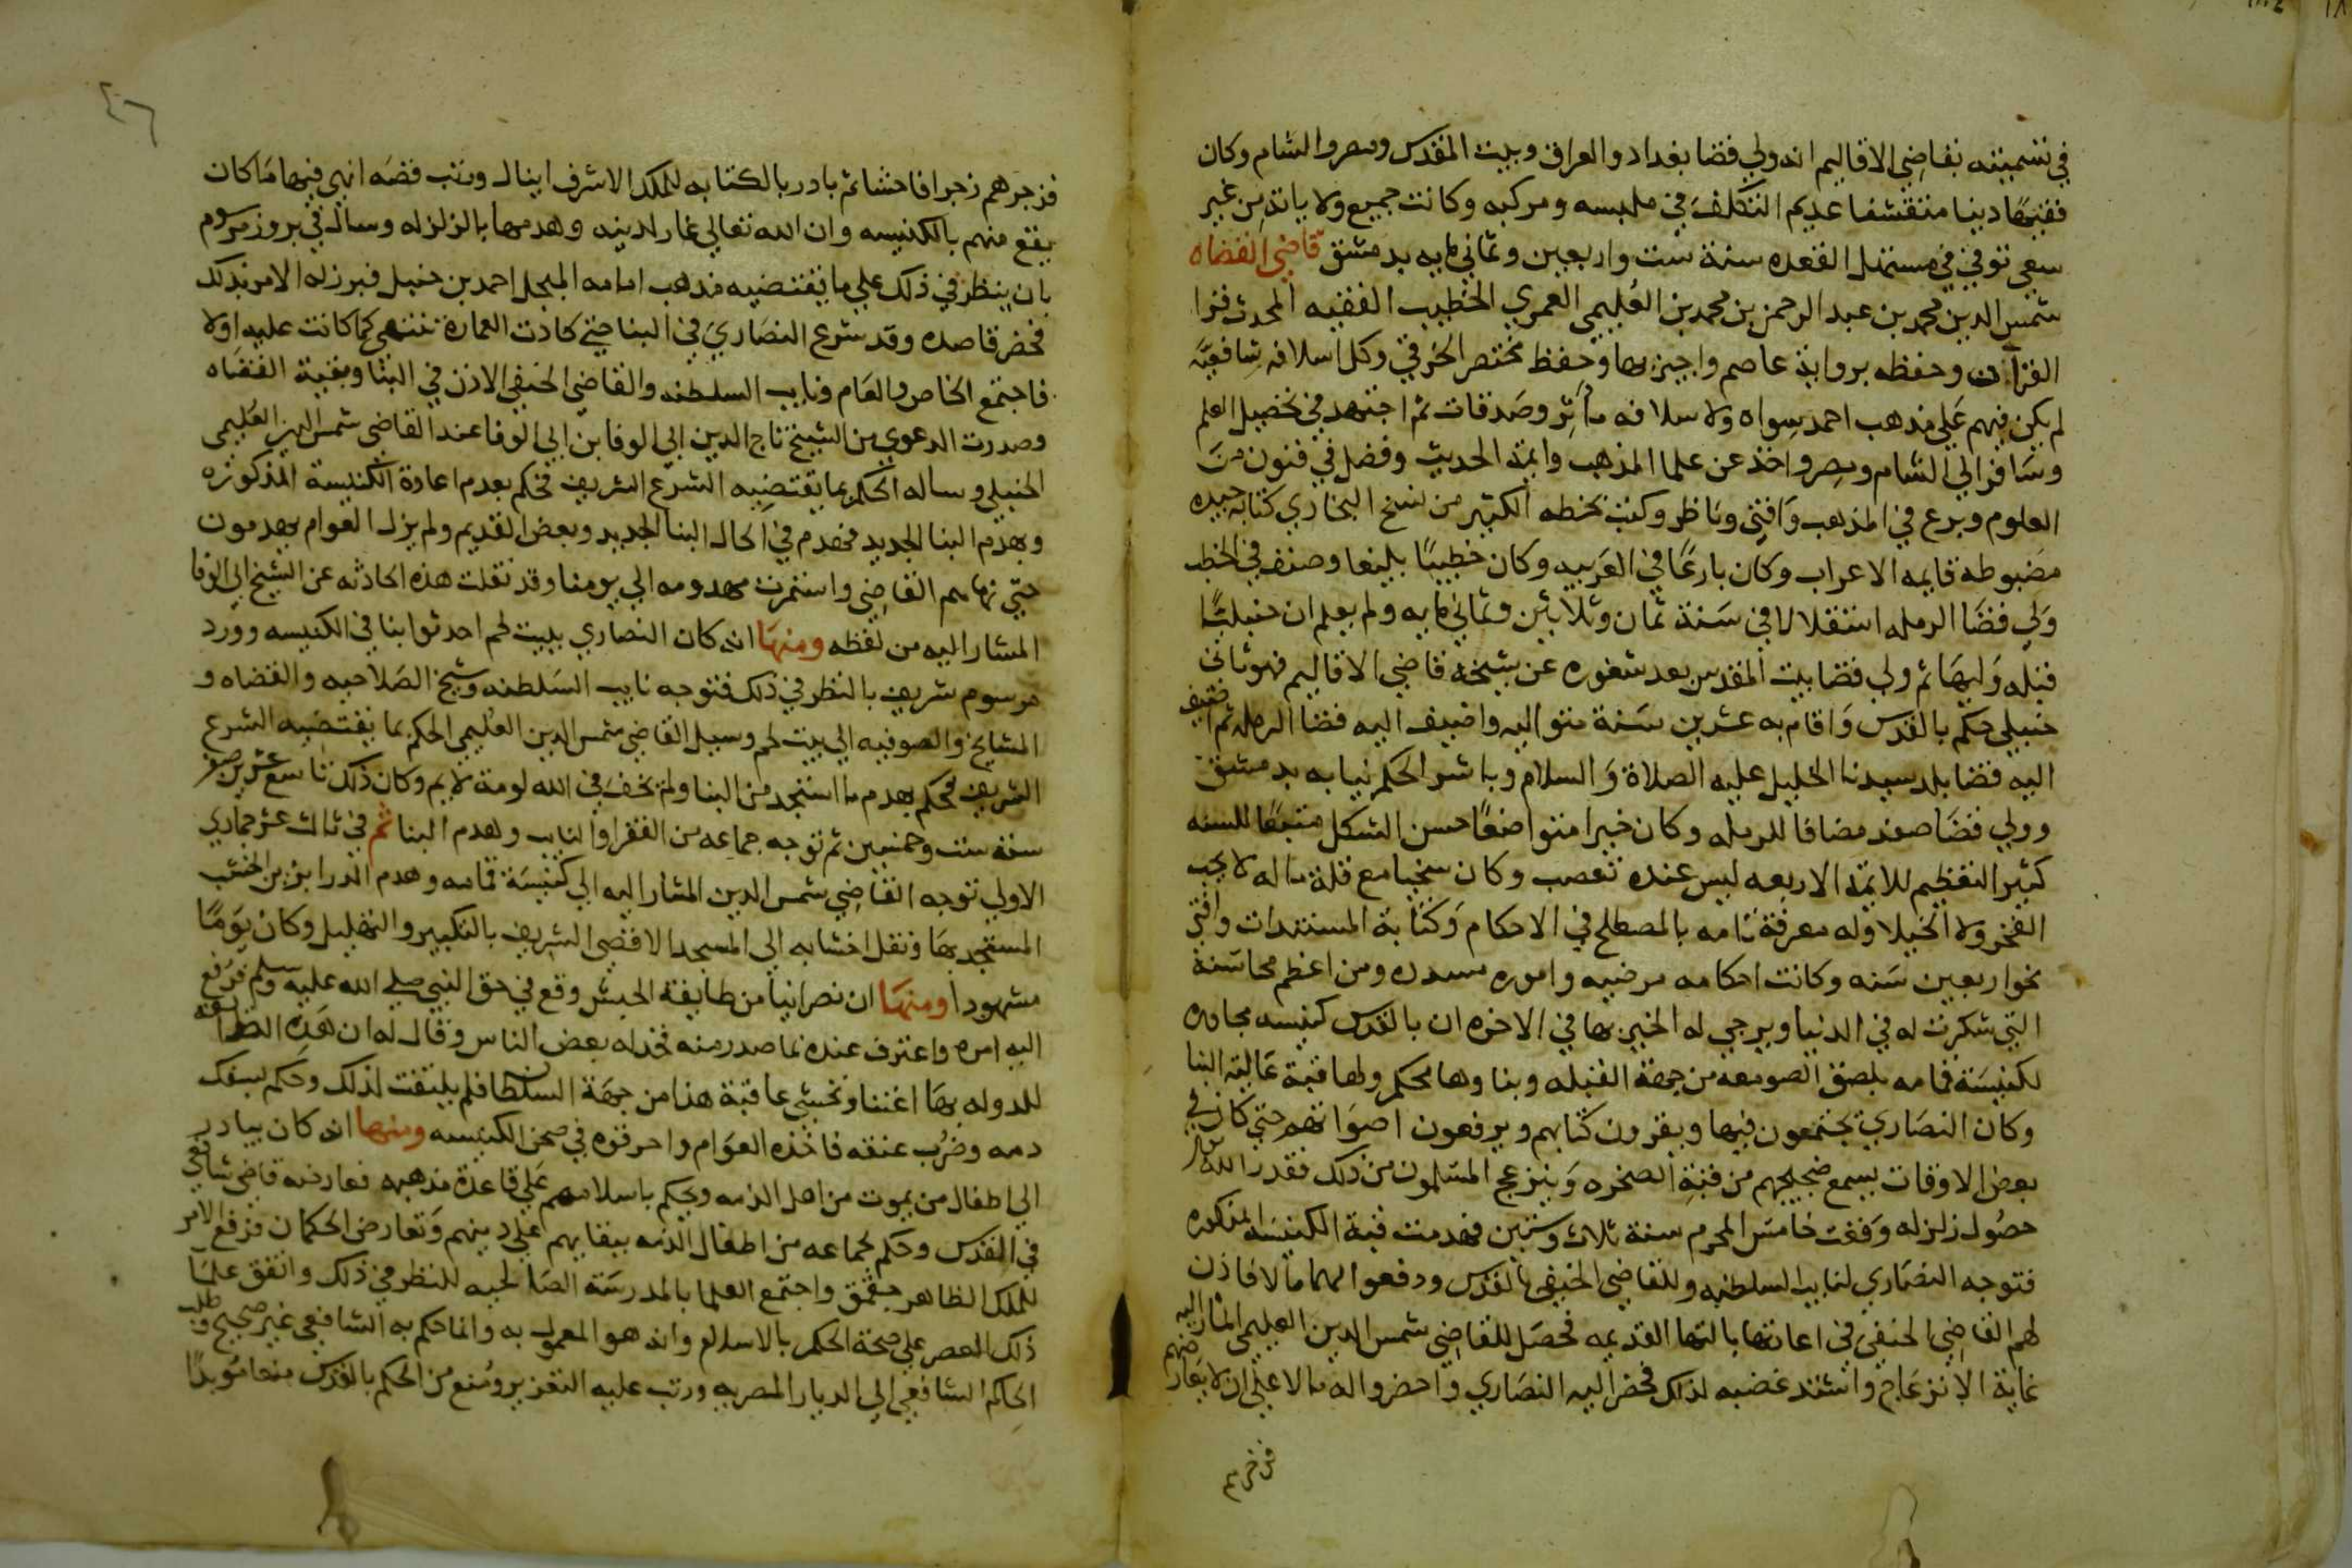 في تسميته بقاضي الاقاليم انه ولي قضا بغداد والعراق وبيت المقدس ومصر والشام وكان
فقيهًا دينا متقشفا عديم التكلف في ملبسه ومركبه وكانت جميع ولاياته من غير
سعي توفي في مستهل القعده سنة ست واربعين وثماني مايه بدمشق قاضي القضاه
شمس الدين محمد بن عبد الرحمن بن محمد بن العُليمي العمري الخطيب الفقيه المحدث قرا
القرآن وحفظه برواية عاصم واجيز بها وحفظ مختصر الخرقي وكل اسلافه شافعيَّه
لم يكن فيهم عَلي مذهب احمد سِواه ولاسلافه مآثر وصَدقات ثم اجتهد في تحصيل العلم
وسَافر الي الشام ومصر واخذ عن علما المذهب وايمة الحديث وفضل في فنون منَ
العلوم وبرع في المذهب وَافتي وناظر وكتب بخطه الكثير من نسخ البخاري كتابة جيده
مضبوطه قايمه الاعراب وكان بارعًا في العَربيه وكان خطيبًا بليغا وصنف في الخطب
وَلي قضَا الرمله استقلالا في سَنة ثمان وثلاثين وثماني مايه ولم يعلم ان حنبليًّا
قبله وَليهَا ثم ولي قضا بيت المقدس بعد شغوره عن شيخه قاضي الاقاليم فهو ثاني
حنبلي حكم بالقدس وَاقام به عشرين سَنة متواليه واضيف اليه قضا الرمله ثم اضيف
اليه قضا بلد سيدنا الخليل عليه الصلاة وَالسلام وباشر الحكم نيابه بدمشق
وولي قضَا صفد مضافا للرمله وكان خيرا متواضعًا حسن الشكل متبعًا للسنه
كثير التعظيم للايمة الاربعه ليس عنده تعصب وكان سخيا مع قلة ماله لا يحب
الفخر ولا الخيلا وله معرفة تامه بالمصطلح في الاحكام وَكتابة المستندات وافتي
نحو اربعين سَنه وكانت احكامه مرضيه واموره مسدده ومن اعظم محاسنه
التي شكرت له في الدنيا ويرجي له الخير بها في الاخره ان بالقدس كنيسه مجاوره
لكنيسَة قمامه بلصق الصومعه من جهة القبله وبناوها محكم ولها قبة عَالية البنا
وكان النصَاري يجتمعون فيها ويقرون كتابهم ويرفعون اصوَاتهم حتي كان في
بعض الاوقات يسمع ضجيجهم من قبة الصخره وَينزعج المسلمون من ذلك فقدر الله تعالي
حصُول زلزله وَقعت خامس المحرم سنة ثلاث وستين فهدمت قبة الكنيسَه المذكوره
فتوجه النصَاري لنايب السلطنه وللقاضي الحنفي بالقدس ودفعوا لهما مالا فاذن
لهم القاضِي الحنفي في اعادتها بالتها القديمه فحصَل للقاضِي شمس الدين العليمي المشار اليه
غاية الانزعَاج واشتد غضبه لذلك فحضر اليه النصَاري واحضروا له مالا علي ان لا يعَارضهم
فزجرهم
٤٦
فزجرهم زجرا فاحشا ثم بادر بالكتابه للملك الاشرف اينال ورتب قصَه انهي فيها مَا كان
يقع منهم بالكنيسه وان الله تعالي غار لدينه وهدمها بالزلزله وسال في بروز مرسوم
بان ينظر في ذلك علي ما يقتضيه مذهب امامه المبجل احمد بن حنبل فبرز له الامر بذلك
فحضر قاصده وقد شرع النصَاري في البنا حتي كادت العمارة تنتهي كما كانت عليه اولا
فاجتمع الخاص والعَام ونايب السلطنه والقاضي الحنفي الاذن في البنا وبقية القضَاه
وصدرت الدعوي من الشيخ تاج الدين ابي الوفا بن ابي الوفا عند القاضي شمس الدين العُليمي
الحنبلي وساله الحكم بما يقتضِيه الشرع الشريف فحكم بعدم اعادة الكنيسة المذكوره
وبهدم البنا الجديد فهدم في الحال البنا الجديد وبعض القديم ولم يزل العوام يهدمون
حتي نهاهم القاضِي واستمرت مهدومه الي يومنا وقد نقلت هذه الحادثه عن الشيخ ابي الوفا
المشار اليه من لفظه ومنهَا انه كان النصاري ببيت لحم احدثوا بنا في الكنيسه وورد
مرسوم شريف بالنظر في ذلك فتوجه نايب السَلطنه وشيخ الصَلاحيه والقضاه و
المشايخ والصوفيه الي بيت لحم وسيل القاضي شمس الدين العُليمي الحكم بما يقتضيه الشرع
الشريف فحكم بهدم ما استجد من البنا ولم يخفَ في الله لومة لايم وكان ذلك تاسع عشرين صفر
سنة ست وخمسين ثم توجه جماعه من الفقرا والنايب وهدم البنا ثم في ثالث عشر جمادي
الاولي توجه القَاضِي شمس الدين المشار اليه الي كنيسَة قمامه وهدم الدرابزين الخشب
المستجد بهَا ونقل اخشابه الي المسجد الاقصي الشريف بالتكبير والتهليل وكان يَومًا
مشهودا ومنهَا ان نصرانيا من طايفة الحبش وقع في حق النبي صلي الله عليه وسلم فرفع
اليه امره واعترف عنده بما صدر منه فخذله بعض الناس وقال له ان هَذه الطايفه
للدوله بهَا اعتنا ونخشي عاقبة هذا من جهَة السلطان فلم يلتفت لذلك وحكم بسفك
دمه وضُرب عنقه فاخذه العوَام واحرقوه في صحن الكنيسه ومنها انه كان يبادر
الي اطفال من يموت من اهل الذمه ويحكم باسلامهم عَلي قاعدة مذهبه فعارضه قاضي شافعي
في القدس وحكم لجماعه من اطفال الذمه ببقايهم علي دينهم وَتعارض الحكمان فرفع الامر
للملك الظاهر جقمق واجتمع العلما بالمدرسَة الصَالحيه للنظر في ذلك واتفق علمَا
ذلك العصر علي صحة الحكم بالاسلام وانه هو المعمول به وانما حكم به الشافعي غير صحيح وطلب
الحاكم الشافعي الي الديار المصريه ورتب عليه التعزير ومُنع من الحكم بالقدس منعا مُوبدًا